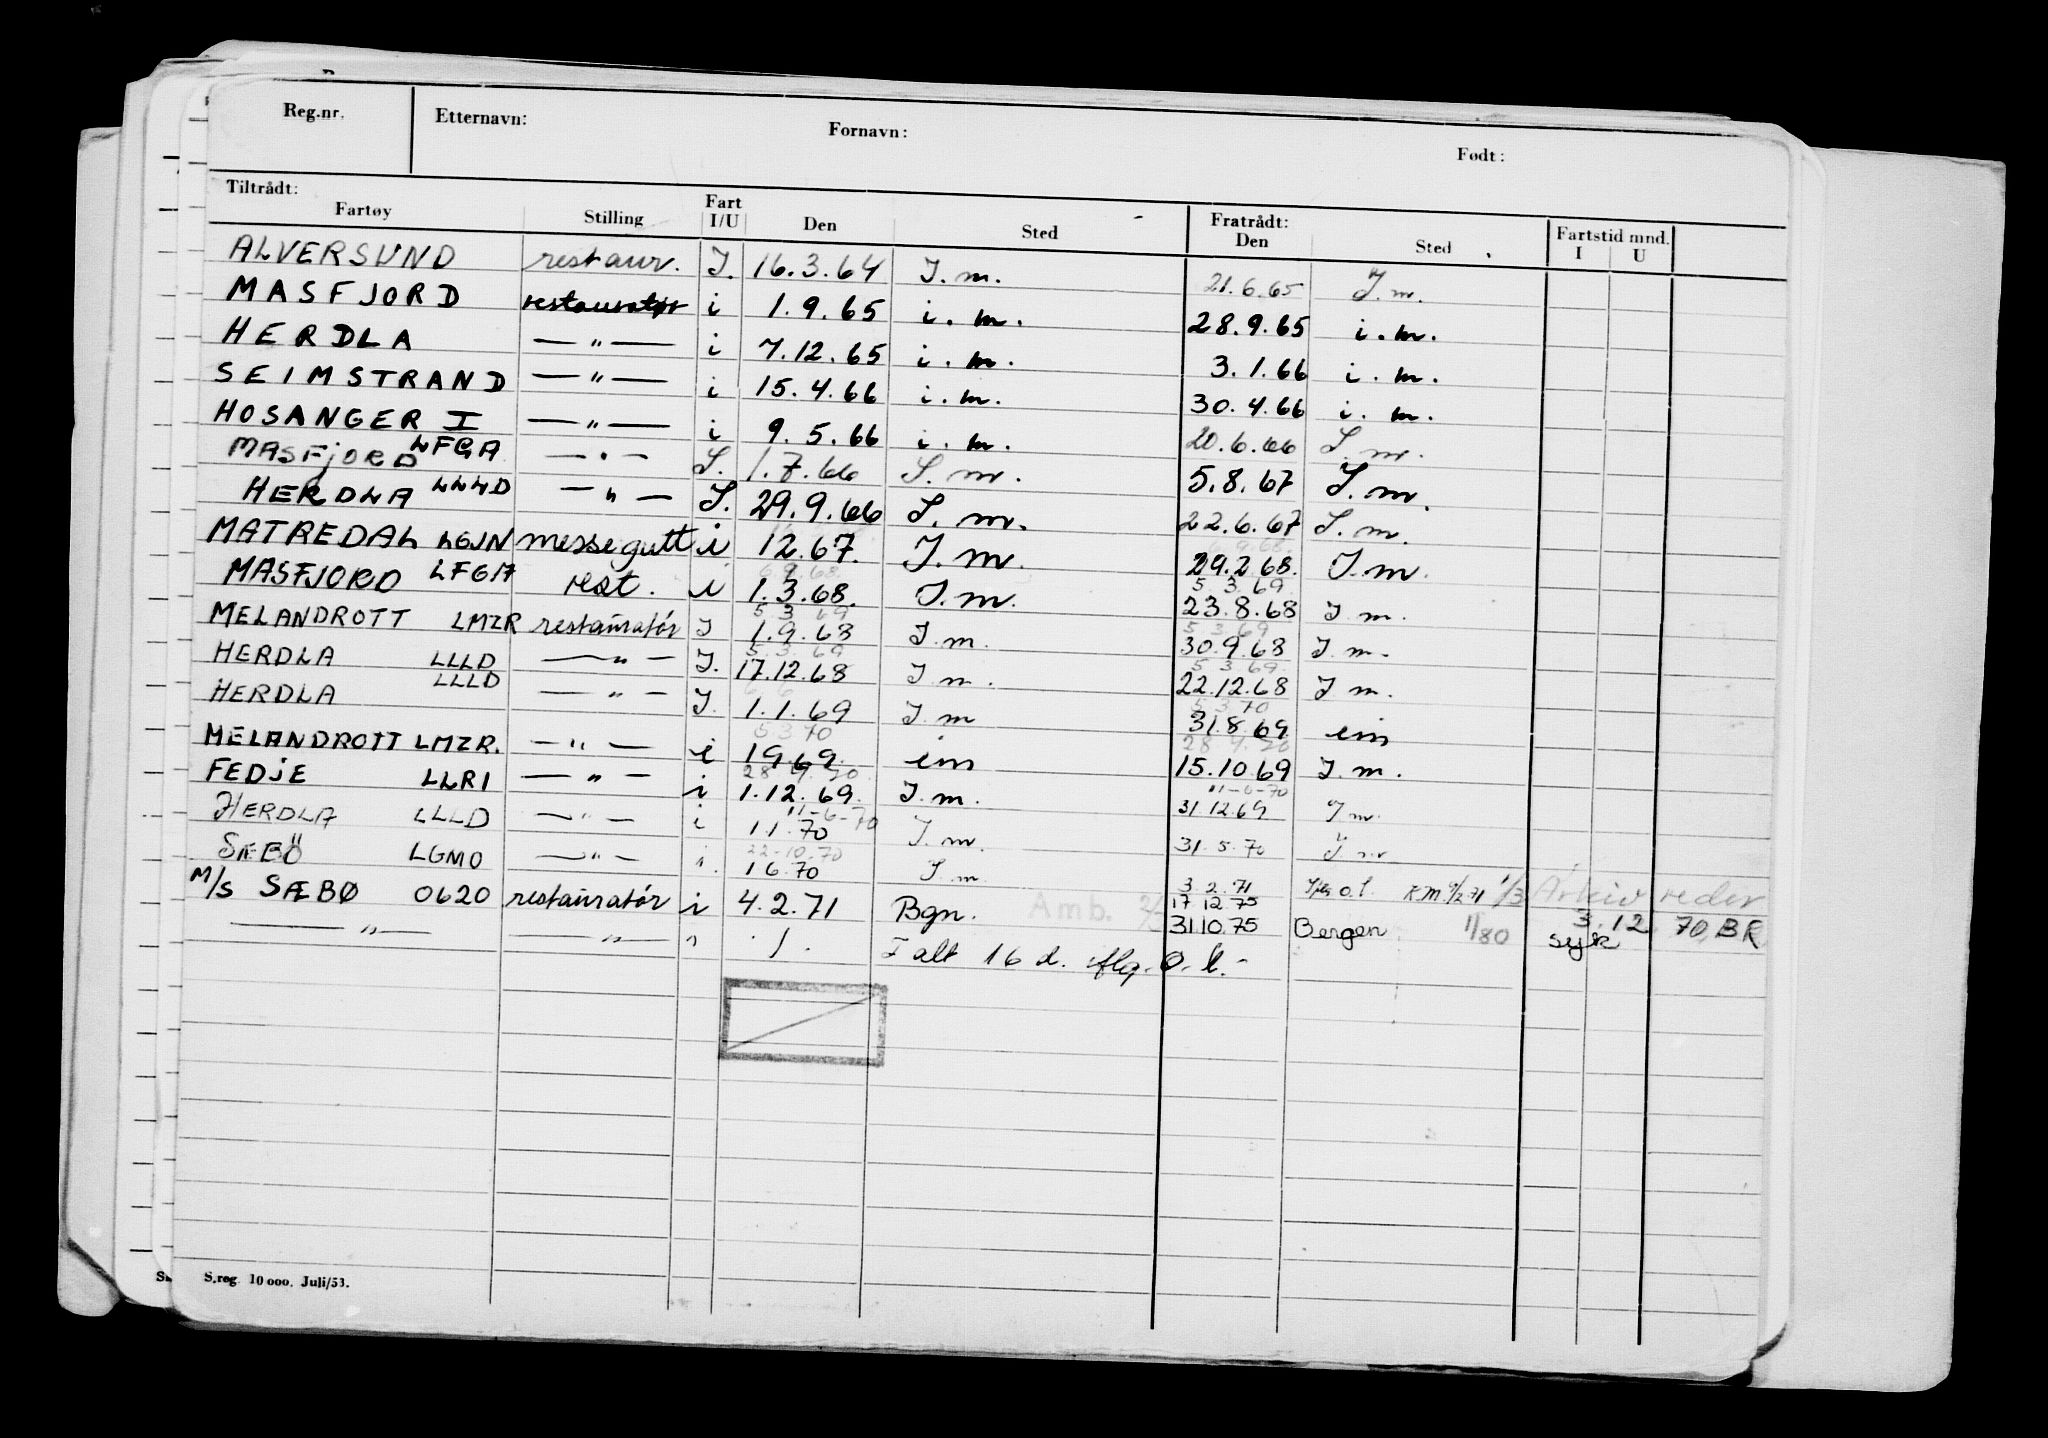 Reg.nr. Etternavn: Fornavn: Født:
Tiltrådt: Fratrådt: Fartstid mnd.
Fartøy Stilling Fart I/U Den Sted Den Sted I U
ALVERSUND restaur. I. 16.3.64 I.m. 21.6.65 I.m.
MASFJORD restauratør i 1.9.65 i.m. 28.9.65 i.m.
HERDLA —"— i 7.12.65 i.m. 3.1.66 i.m.
SEIMSTRAND —"— i 15.4.66 i.m. 30.4.66 i.m.
HOSANGER I —"— i 9.5.66 i.m. 20.6.66 I.m.
MASFJORD LFGA —"— I. 1.7.66 I.m. 5.8.67 I.m.
HERDLA LLLD —"— I. 29.9.66 I.m. 22.6.67 I.m.
MATREDAL LGJN messegutt i 12.67. I.m. 29.2.68. I.m.
MASFJORD LFGA rest. i 1.3.68. I.m. 5.3.69 23.8.68 I.m.
MELANDROTT LMZR restauratør I 5.3.69 1.9.68 I.m. 5.3.69 30.9.68 I.m.
HERDLA LLLD —"— I. 5.3.69 17.12.68 I.m. 5.3.69 22.12.68 I.m.
HERDLA LLLD —"— I. 1.1.69 I.m 5.3.70 31.8.69 im
MELANDROTT LMZR. —"— i 5.3.70 1.9.69. im 28.4.70 15.10.69 I.m.
FEDJE LLRI —"— i 28.4.70 1.12.69. I.m. 11-6-70 31.12.69 I.m.
HERDLA LLLD —"— i 11-6-70 1.1.70 I.m. 31.5.70 I.m
SÆBÖ LGMO —"— " 22-10.70 1.6.70 I.m 3.2.71 o.l. KM 9/2.71 1/3 Arkiv reder
M/S SÆBØ 0620 restauratør i 4.2.71 Bgn. Amb. 17.12.75 31.10.75 Bergen 11/80 syk 3.12.70, BR
—"— —"— " ./. I alt 16 d. iflg. o.l.-
S.reg. 10 000. Juli/53.